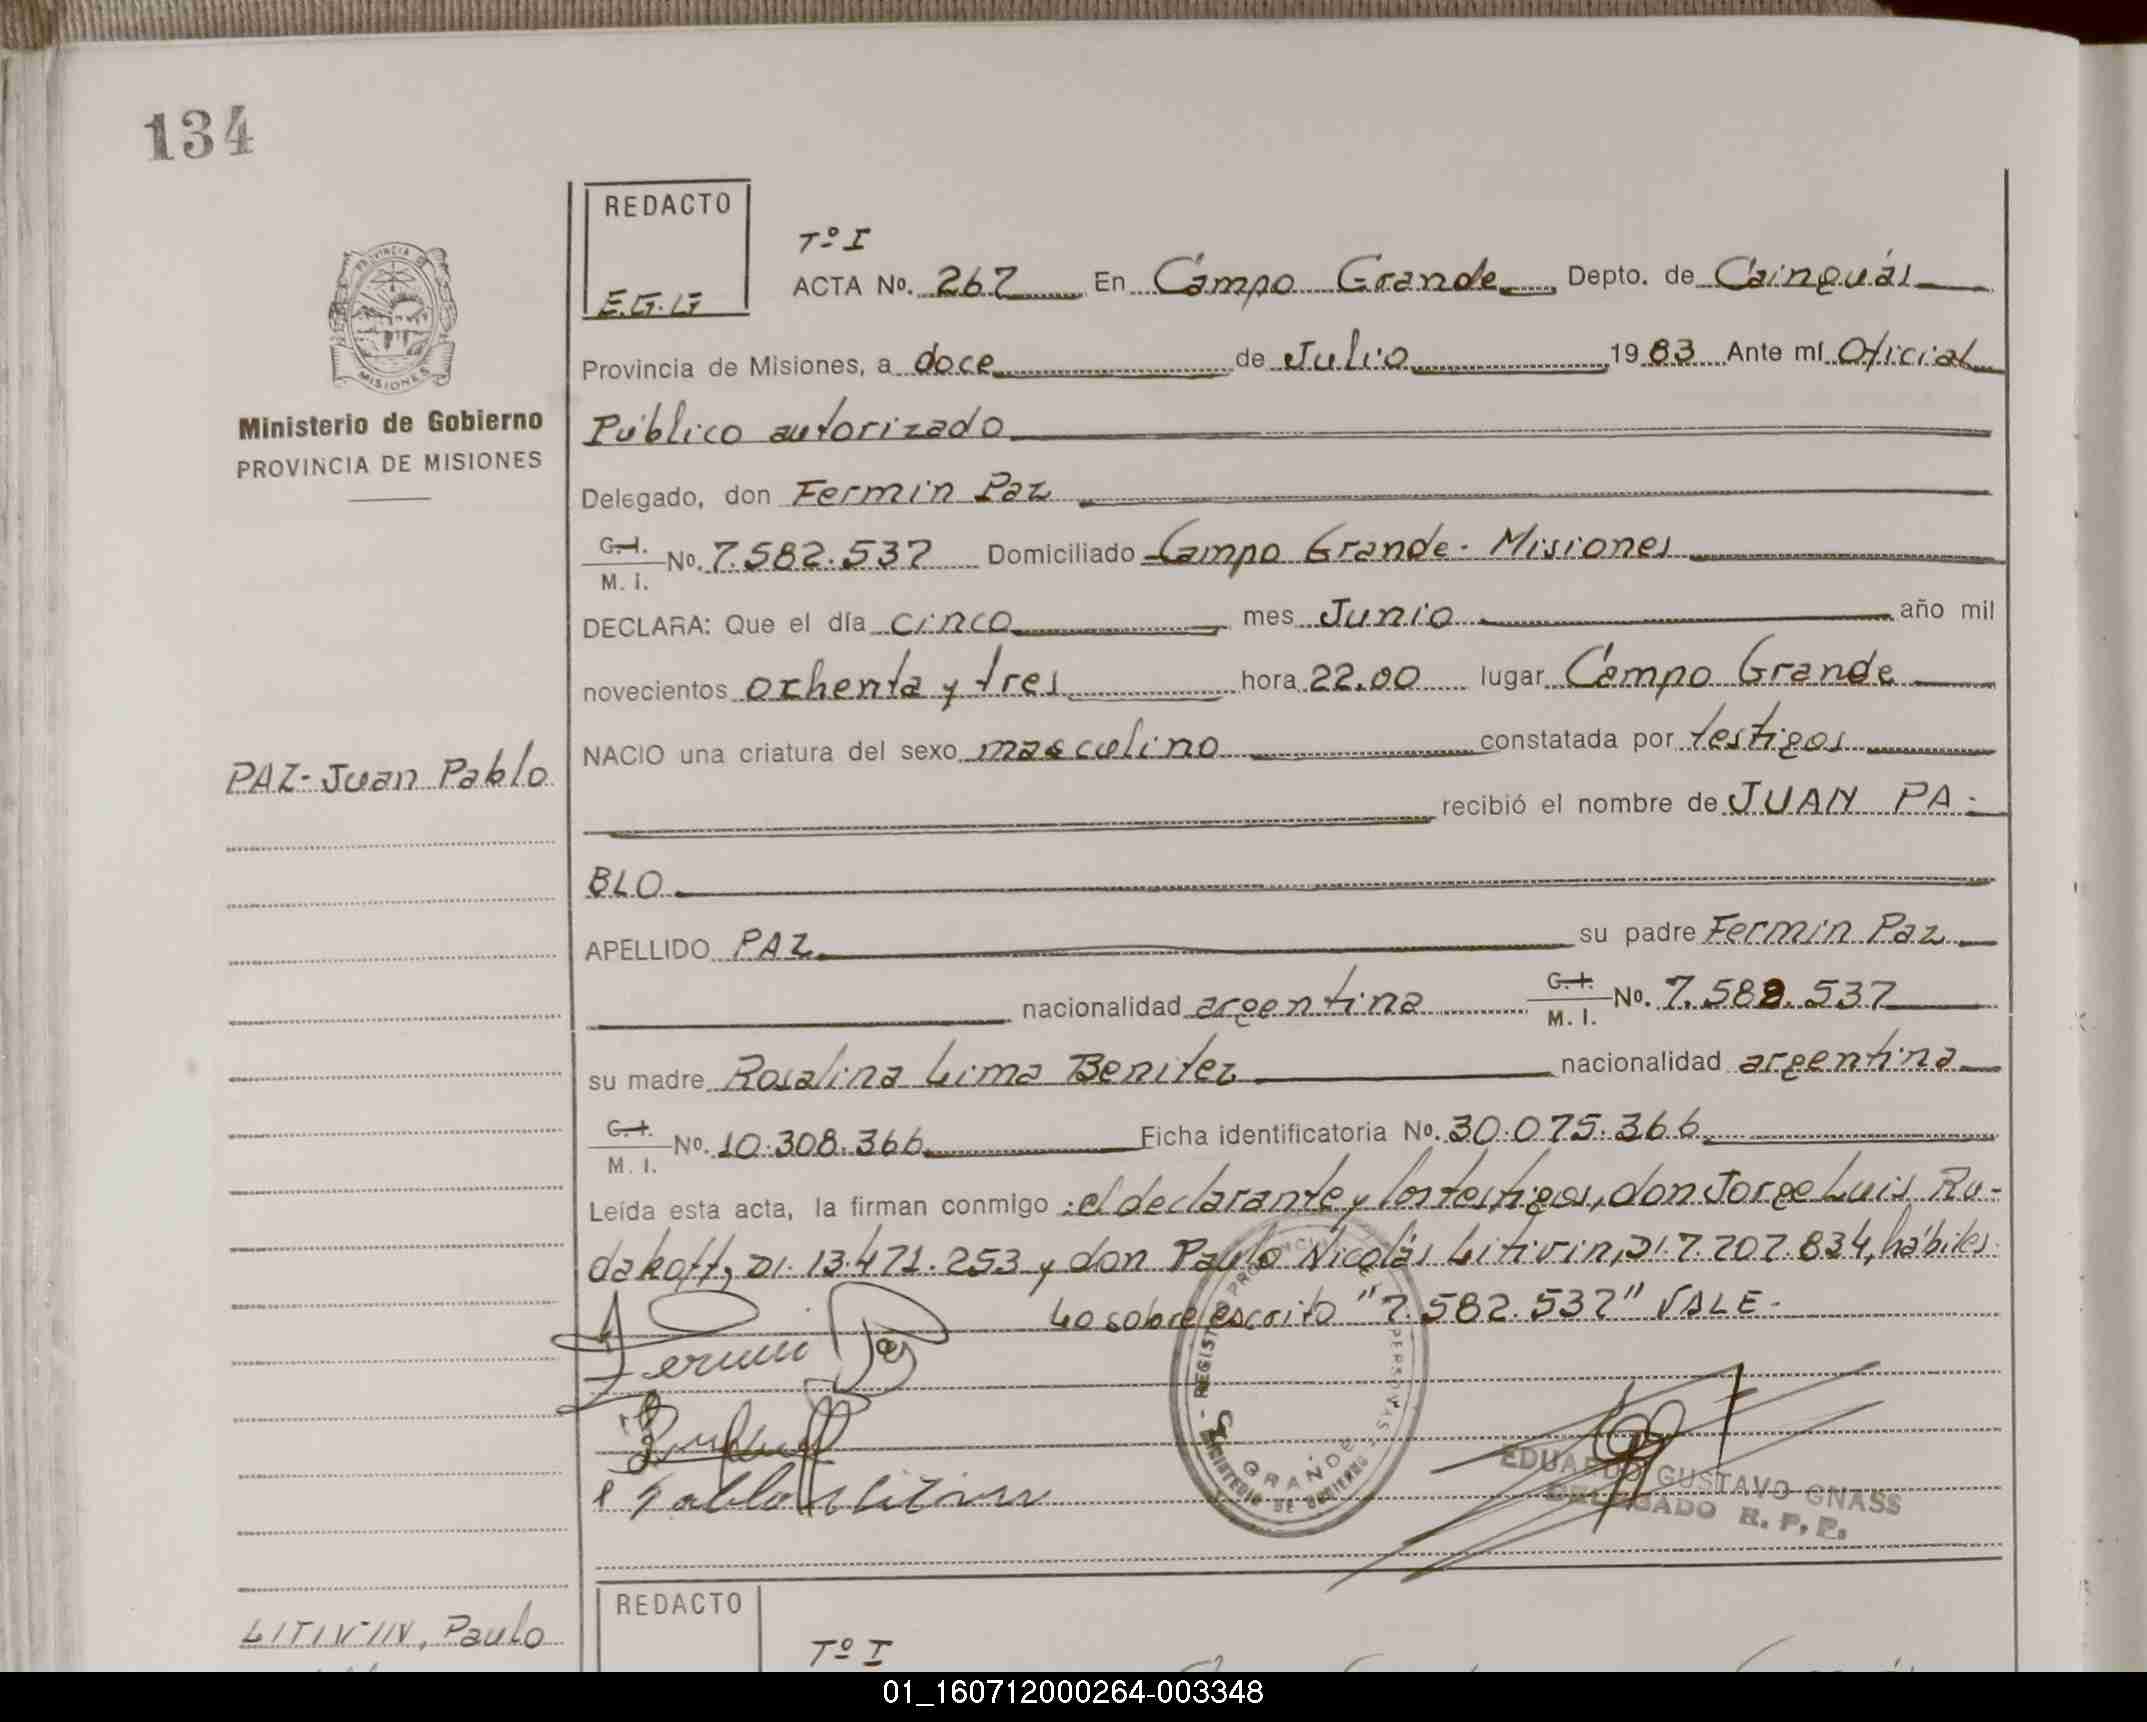 134
REDACTO
E.G.G
Tº I
ACTA Nº. 267 En Campo Grande Depto. de Cainguás
PROVINCIA DE
MISIONES
Provincia de Misiones, a doce de Julio 1983 Ante mí Oficial
Ministerio de Gobierno
PROVINCIA DE MISIONES
Público autorizado
Delegado, don Fermin Paz
C. I.
M. I. Nº. 7.582.537 Domiciliado Campo Grande - Misiones
DECLARA: Que el día cinco mes Junio año mil
novecientos ochenta y tres hora 22.00 lugar Campo Grande
NACIO una criatura del sexo masculino constatada por testigos
PAZ - Juan Pablo
recibió el nombre de JUAN PA-
BLO
APELLIDO PAZ su padre Fermin Paz
nacionalidad argentina C. I.
M. I. Nº. 7.582.537
su madre Rosalina Lima Benitez nacionalidad argentina
C. I.
M. I. Nº. 10.308.366 Ficha identificatoria Nº. 30.075.366
Leída esta acta, la firman conmigo: el declarante y los testigos, don Jorge Luis Ru-
dakoff, DI. 13.471.253 y don Paulo Nicolás Litivin, DI 7.707.834, hábiles.
Lo sobre escrito "7.582.537" VALE-
Fermin Paz
GRANDE
MINISTERIO DE GOBIERNO
EDUARDO GUSTAVO GNASS
DELEGADO R. P. P.
REDACTO
Tº I
LITIVIN, Paulo
01_160712000264-003348